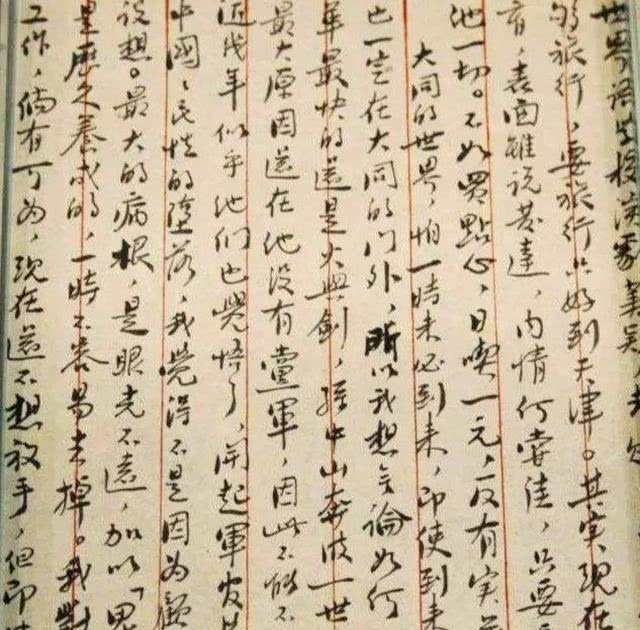 世界語學校
够旅行，要旅行只好到天津。其实現在
育，表面雖说發達，内情何嘗佳，只要
他一切。不如買點心，日喫一元，反有实
大同的世界，怕一時未必到来，即使到来
也一定在大同的门外，所以我想无論如何
革最快的還是火與劍，孫中山奔波一世
最大原因還在他没有黨軍，因此不能不
近幾年似乎他们也覺悟了，開起軍官
中國國民性的墮落，我覺得不是因为顧
設想。最大的病根，是眼光不遠，加以「卑
是歷久養成的，一時不容易去掉。我對
工作，倘有可为，現在還不想放手，但即